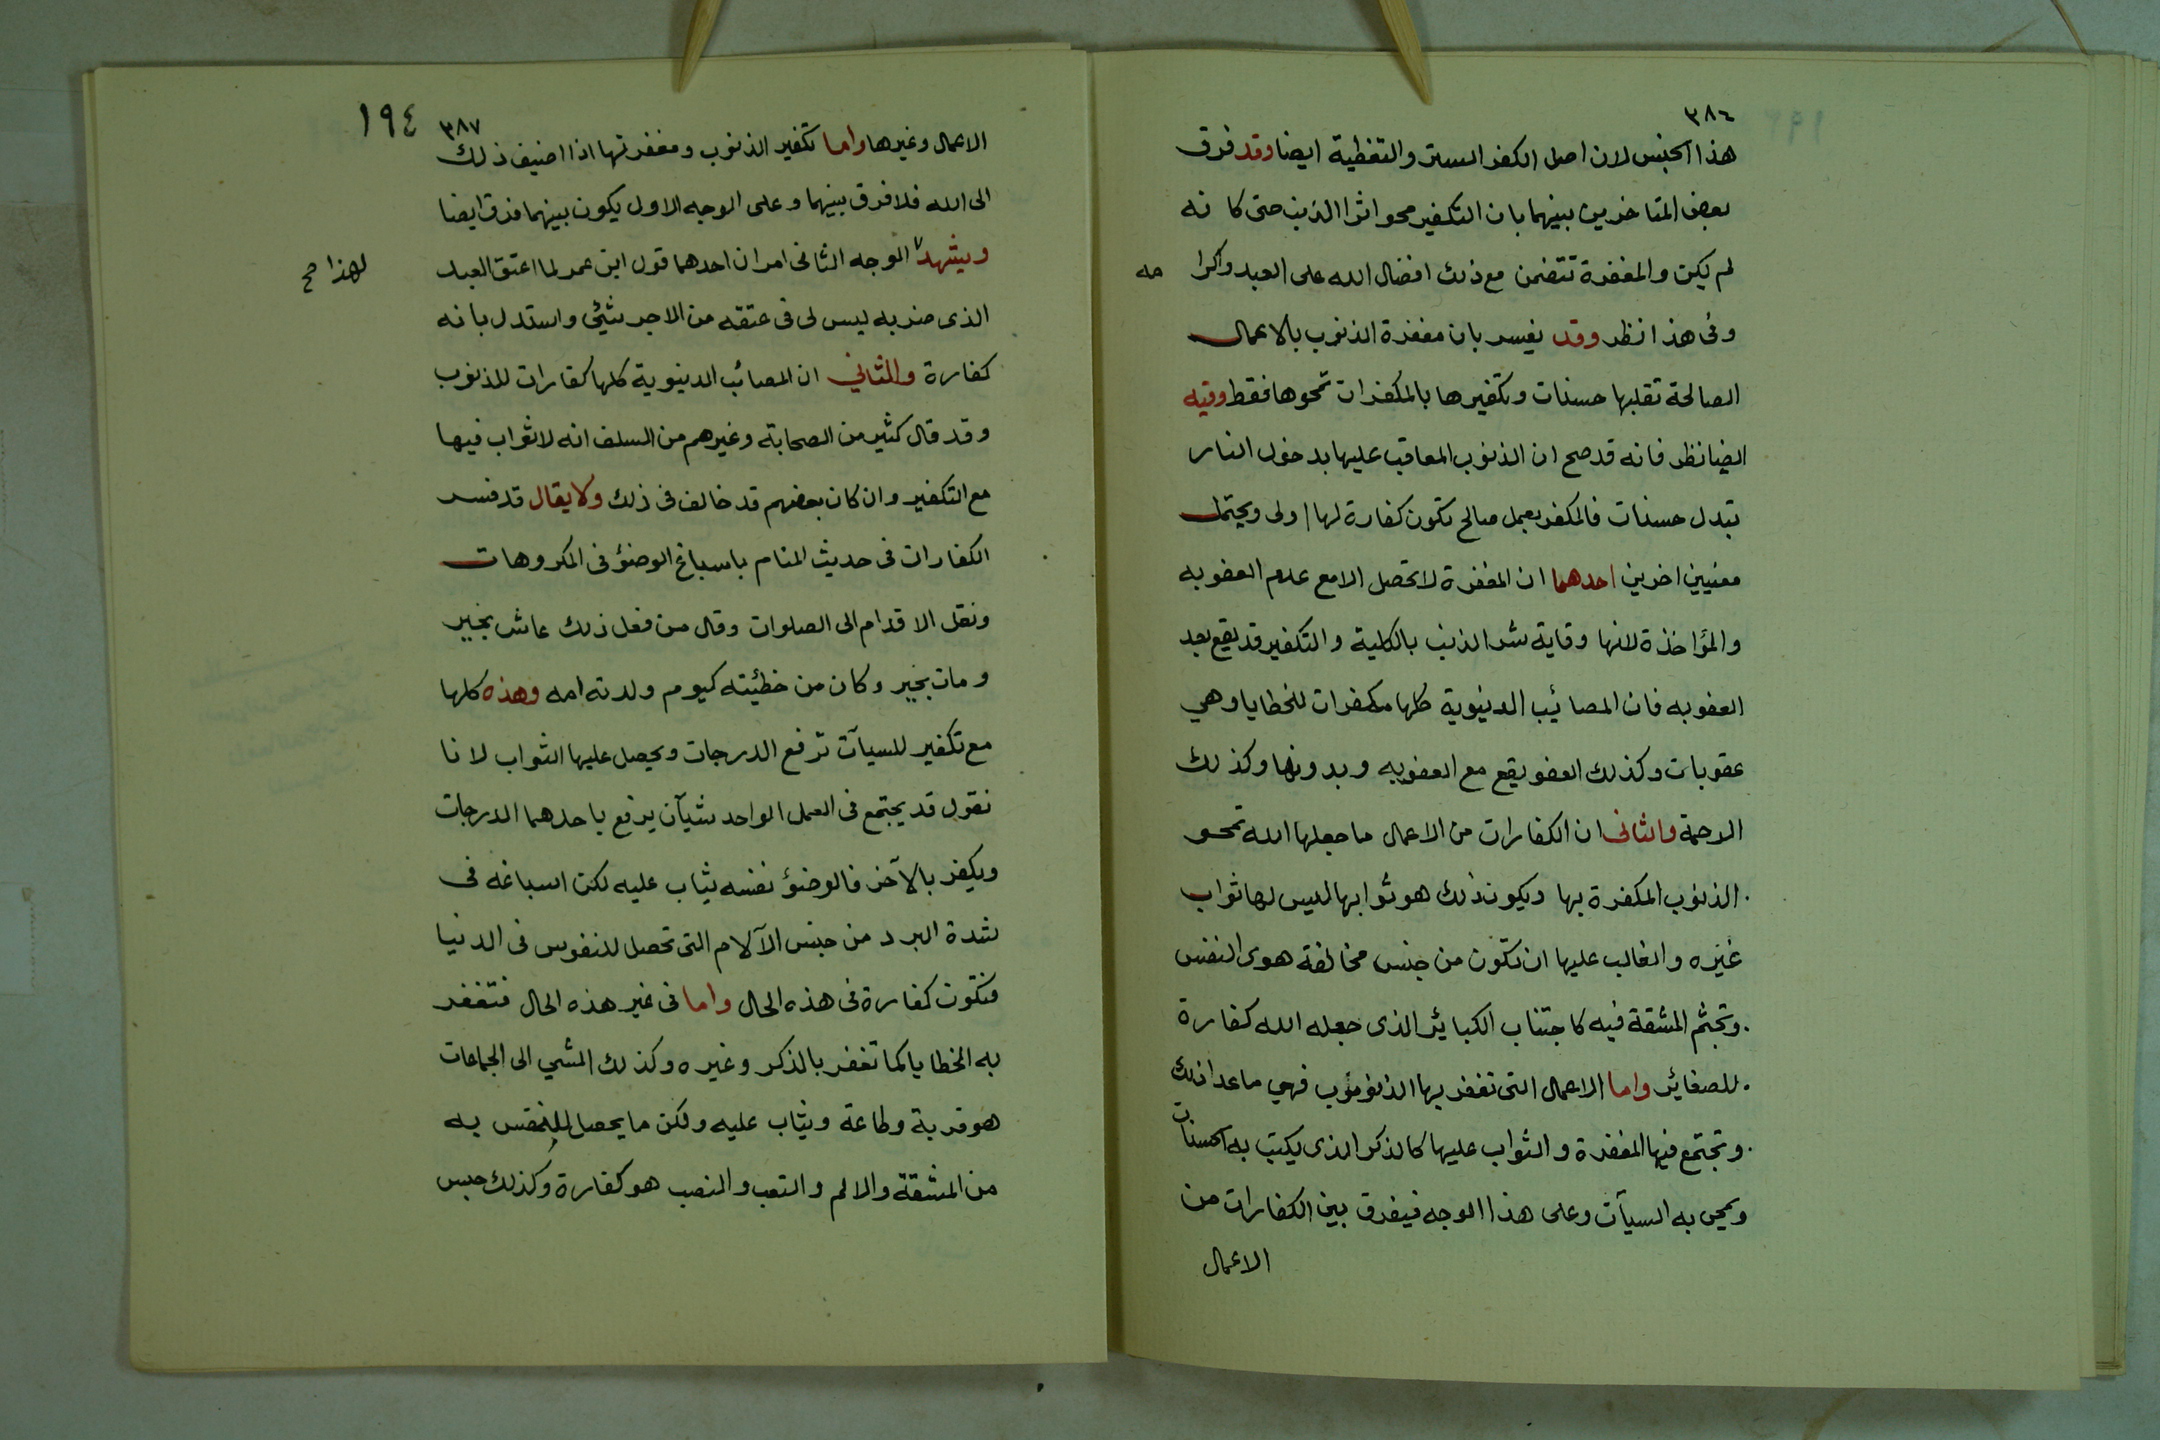 ٣٨٦
هذا الجنس لان اصل الكفر الستر والتغطية ايضا وقد فرق
بعض المتاخرين بينهما بان التكفير محو اثرا الذنب حتى كا نه
لم يكن والمغفرة تتضمن مع ذلك افضال الله على العبد واكرا مه
وفى هذا نظر وقد يفسر بان مغفرة الذنوب بالاعمال
الصالحة تقلبها حسنات وتكفيرها بالمكفرات تمحوها فقط وفيه
ايضا نظر فانه قد صح ان الذنوب المعاقب عليها بدخول النار
تبدل حسنات فالمكفر بعمل صالح تكون كفارة لها اولى ويحتمل
معنيين اخرين احدهما ان المغفرة لا تحصل الا مع عدم العقوبه
والمؤاخذة لانها وقاية شر الذنب بالكلية والتكفير قد يقع بعد
العقوبه فان المصائيب الدنيوية كلها مكفرات للخطايا وهي
عقوبات وكذلك العفو يقع مع العقوبه وبدونها وكذلك
الرحمة والثانى ان الكفارات من الاعمال ما جعلها الله تمحو
الذنوب المكفرة بها ويكون ذلك هو ثوابها ليس لها ثواب
غيره والغالب عليها ان تكون من جنس مخالفة هوى النفس
وتجشم المشقة فيه كاجتناب الكبائر الذى جعله الله كفارة
للصغائر واما الاعمال التى تغفر بها الذنوب فهي ما عدا ذلك
وتجتمع فيها المغفرة والثواب عليها كالذكر الذى يكتب به الحسنات
ويمحى به السيآت وعلى هذا الوجه فيفرق بين الكفارات من
الاعمال
١٩٤
٣٨٧
الاعمال وغيرها واما تكفير الذنوب ومغفرتها اذا اضيف ذلك
الى الله فلا فرق بينهما وعلى الوجه الاول يكون بينهما فرق ايضا
ويشهد الوجه الثانى امران احدهما قول ابن عمر لما اعتق العبد
لهذا صح
الذى ضربه ليس لى فى عتقه من الاجر شيئ واستدل بانه
كفارة والثاني ان المصائب الدنيوية كلها كفارات للذنوب
وقد قال كثير من الصحابة وغيرهم من السلف انه لا ثواب فيها
مع التكفير وان كان بعضهم قد خالف فى ذلك ولا يقال قد فسر
الكفارات فى حديث المنام باسباغ الوضؤ فى المكروهات
ونقل الاقدام الى الصلوات وقال من فعل ذلك عاش بخير
ومات بخير وكان من خطئيته كيوم ولدته امه وهذه كلها
مع تكفير للسيآت ترفع الدرجات ويحصل عليها الثواب لانا
نقول قد يجتمع فى العمل الواحد شيآن يرفع باحدهما الدرجات
ويكفر بالآخر فالوضؤ نفسه يثاب عليه لكن اسباغه فى
شدة البرد من جنس الآلام التى تحصل للنفوس فى الدنيا
فتكون كفارة فى هذه الحال واما فى غير هذه الحال فتغفر
به الخطايا كما تغفر بالذكر وغيره وكذلك المشي الى الجماعات
هو قربة وطاعة ويثاب عليه ولكن ما يحصل للنفس به
من المشقة والالم والتعب والنصب هو كفارة وكذلك حبس